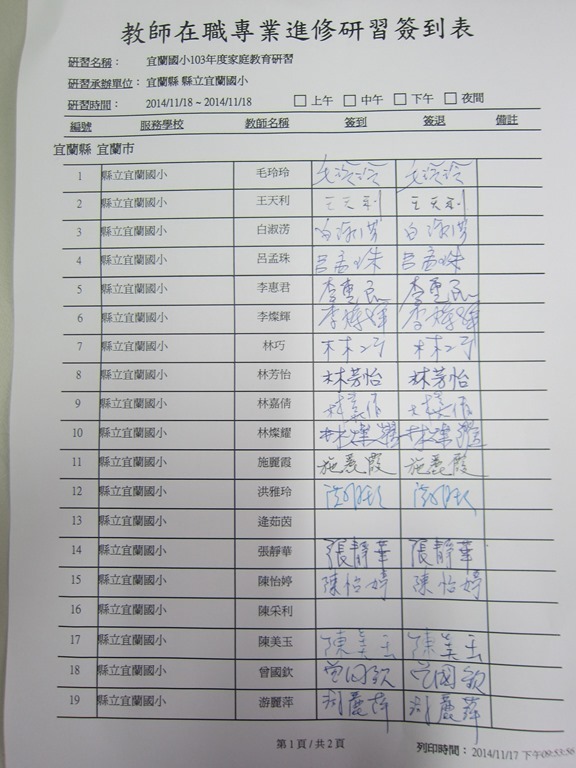 教師在職專業進修研習簽到表
研習名稱： 宜蘭國小103年度家庭教育研習
研習承辦單位： 宜蘭縣 縣立宜蘭國小
研習時間： 2014/11/18 ~ 2014/11/18 □ 上午 □ 中午 □ 下午 □ 夜間
編號 服務學校 教師名稱 簽到 簽退 備註
宜蘭縣 宜蘭市
1 縣立宜蘭國小 毛玲玲 毛玲玲 毛玲玲
2 縣立宜蘭國小 王天利 王天利 王天利
3 縣立宜蘭國小 白淑淓 白淑淓 白淑淓
4 縣立宜蘭國小 呂孟珠 呂孟珠 呂孟珠
5 縣立宜蘭國小 李惠君 李惠君 李惠君
6 縣立宜蘭國小 李燦輝 李燦輝 李燦輝
7 縣立宜蘭國小 林巧 林巧 林巧
8 縣立宜蘭國小 林芳怡 林芳怡 林芳怡
9 縣立宜蘭國小 林嘉倩
10 縣立宜蘭國小 林燦耀 林燦耀 林燦耀
11 縣立宜蘭國小 施麗霞 施麗霞 施麗霞
12 縣立宜蘭國小 洪雅玲
13 縣立宜蘭國小 逄茹茵
14 縣立宜蘭國小 張靜華 張靜華 張靜華
15 縣立宜蘭國小 陳怡婷 陳怡婷 陳怡婷
16 縣立宜蘭國小 陳采利
17 縣立宜蘭國小 陳美玉 陳美玉 陳美玉
18 縣立宜蘭國小 曾國欽 曾国欽 曾國欽
19 縣立宜蘭國小 游麗萍 游麗萍 游麗萍
第 1 頁 / 共 2 頁
列印時間： 2014/11/17 下午 09:53:56